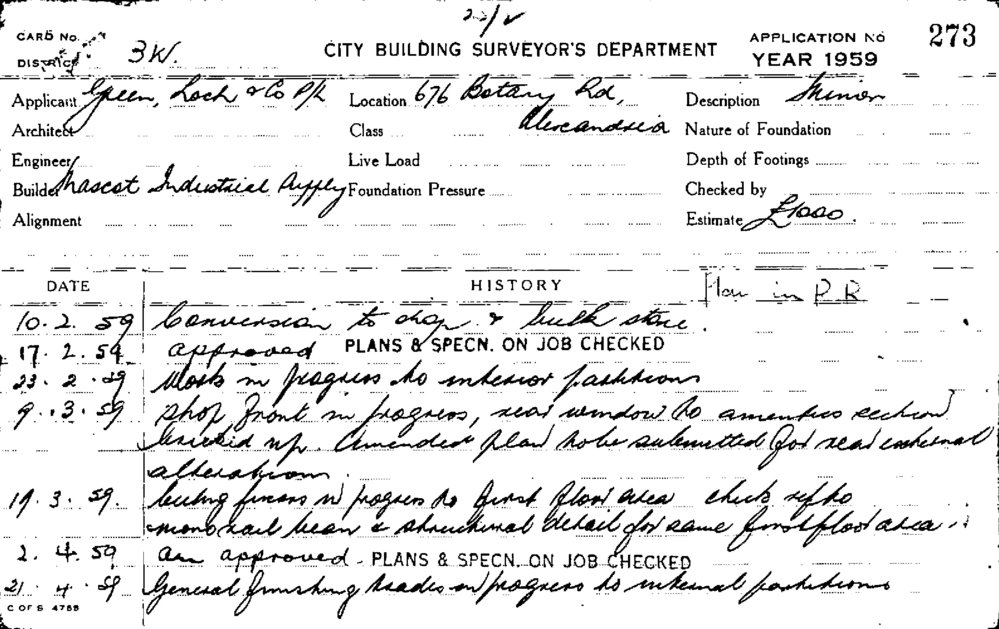 22/V
CARD No.
DISTRICT 3W. CITY BUILDING SURVEYOR'S DEPARTMENT APPLICATION No 273
YEAR 1959
Applicant Green, Loch & Co P/L Location 676 Botany Rd, Description Minor
Architect Class Alexandria Nature of Foundation
Engineer Live Load Depth of Footings
Builder Mascot Industrial Supply Foundation Pressure Checked by
Alignment Estimate £1000.
DATE HISTORY Plan in P R
10.2.59 Conversion to shop & bulk store.
17.2.59 approved PLANS & SPECN. ON JOB CHECKED
23.2.59 Work in progress to interior partitions
9.3.59 Shop front in progress, rear window to amenities section
bricked up. Amended plan to be submitted for rear external
alterations.
19.3.59. Ceiling in progress to first floor area check ref to
monorail beam & structural detail for same first floor area
2.4.59 approved - PLANS & SPECN. ON JOB CHECKED
21.4.59 General finishing trades in progress to internal partitions
C OF S 4788